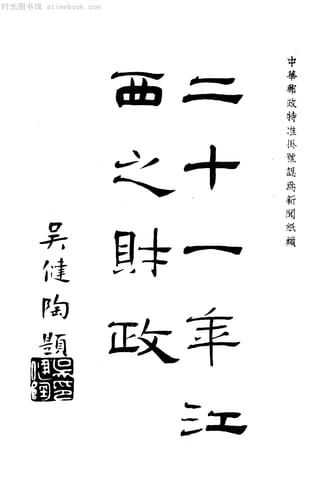 时光图书馆 @ atimebook.com
中華郵政特准掛號認為新聞紙類
二十一年江
西之財政
吳健陶題